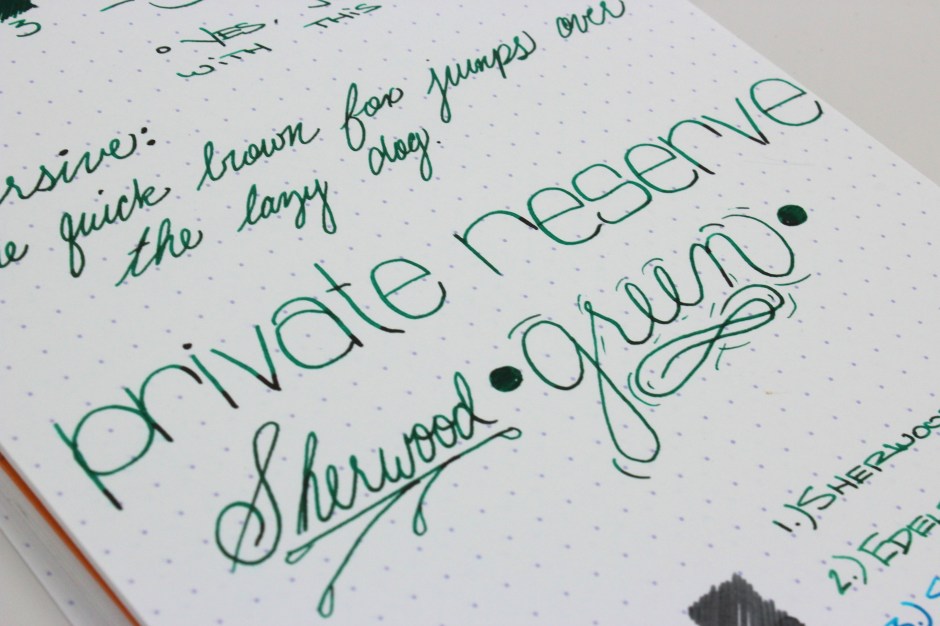 3
• YES,
WITH THIS
rsive:
e quick brown fox jumps over
the lazy dog.
private reserve
Sherwood • green •
1.) SHERWOO
2.) EDEL
3.) S